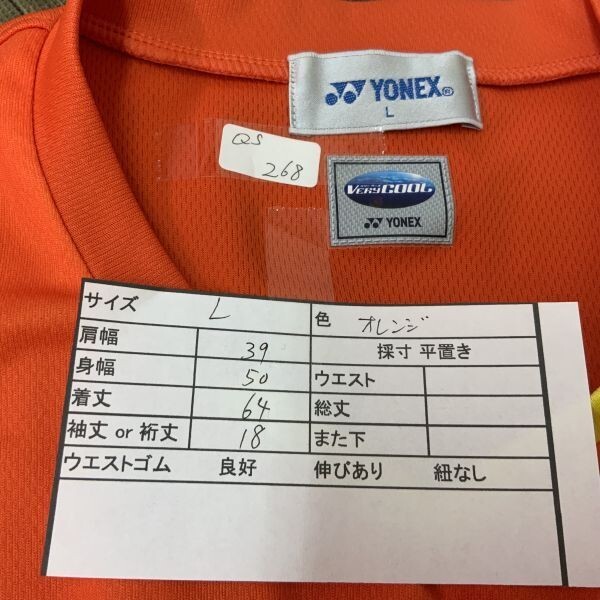 YONEX®
L
QS
268
VERYCOOL
YONEX
サイズ L 色 オレンジ
肩幅 39 採寸 平置き
身幅 50 ウエスト
着丈 64 総丈
袖丈 or 裄丈 18 また下
ウエストゴム 良好 伸びあり 紐なし